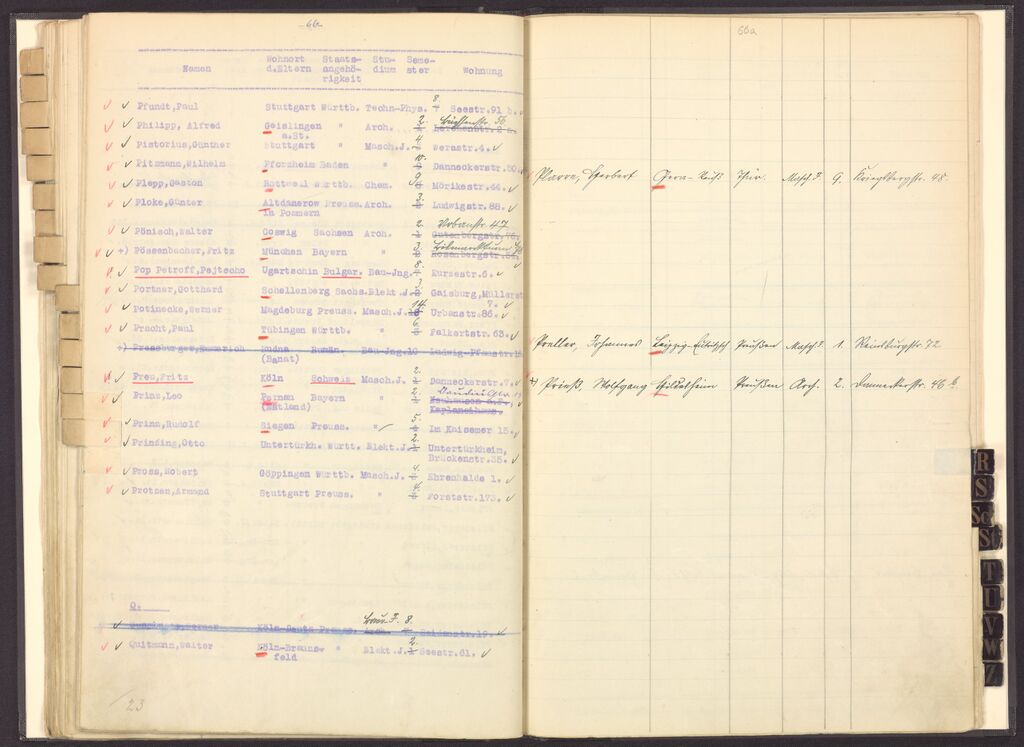 -66-
Namen Wohnort Staats- Stu- Seme- Wohnung
d.Eltern angehö- dium ster
rigkeit
Pfundt,Paul Stuttgart Württb. Techn-Phys. 8. Seestr.91 b.
Philipp, Alfred Geislingen " Arch. 2. Lerchenstr. 56
a.St. Lerchenstr.2 a.
Pistorius,Günther Stuttgart " Masch.J. 4. Werastr.4.
Pitzmann,Wilhelm Pforzheim Baden " 10. Danneckerstr.
Plepp,Gaston Rottweil Württb. Chem. 9. Mörikestr.44.
Ploke,Günter Altdamerow Preuss. Arch. 3. Ludwigstr.88.
in Pommern
2. Urbanstr. 47
Pönisch,Walter Coswig Sachsen Arch. Gutenbergstr.
+) Pössenbacher,Fritz München Bayern " 3. Rosenbergstr.
Pop Petroff,Pejtscho Ugartschin Bulgar. Bau-Jng. 8. Kurzestr.6.
Portner,Gotthard Schellenberg Sachs. Elekt.J. Gaisburg,Müllerst
7.
Potinecke,Werner Magdeburg Preuss. Masch.J. 14. Urbanstr.86.
Pracht,Paul Tübingen Württb. " 6. Falkertstr.63.
+) Pressburger,Emmerich Rudna Rumän. Bau-Jng.10
(Banat)
Preu,Fritz Köln Schweiz Masch.J. 2. Danneckerstr.7.
Prinz,Leo Pernau Bayern " 2.
(Estland) Kaplaneihaus.
Prinz,Rudolf Siegen Preuss. " 5. Im Kaisemer 15.
Prinzing,Otto Untertürkh. Württ. Elekt.J. 2. Untertürkheim,
Brückenstr.35.
Pross,Robert Göppingen Württb. Masch.J. 4. Ehrenhalde 1.
Protzen,Armand Stuttgart Preuss. " 4. Forststr.173.
Q.
Köln-Deutz Preuss. 8. Heidenstr.19.
Quitmann,Walter Köln-Brauns- " Elekt.J. 2. Seestr.61.
feld
/23
66a
Plarre, Herbert Gera-Reuß Thür. Masch.J. 9. Kriegsbergstr. 48
Preller, Johannes Leipzig-Eutritzsch Preußen Masch.J. 1. Reinsburgstr. 72
+) Prieß, Wolfgang Hildesheim Preußen Arch. 2. Danneckerstr. 46 b.
R
S
Sch
St
T
U
V
W
Z